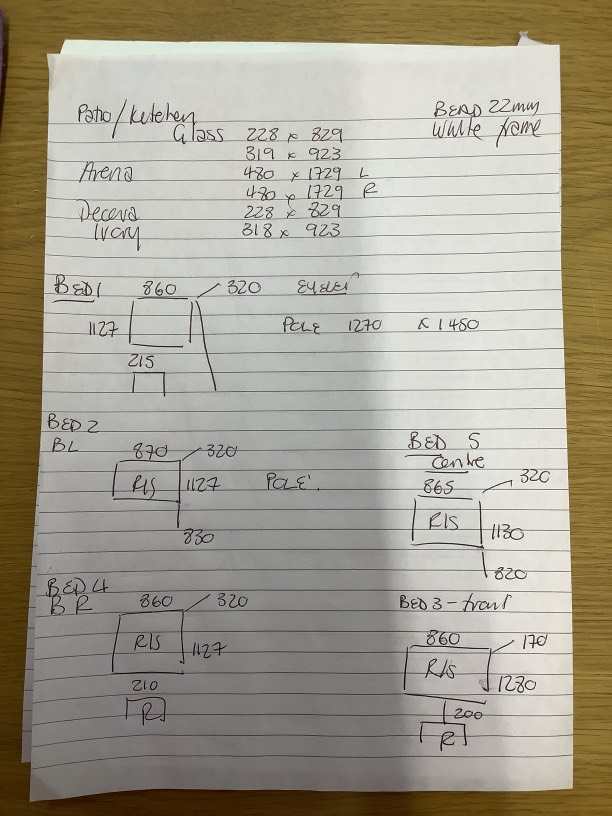 Patio/Kitchen
BEAD 22mm
White frame
Glass 228 x 829
319 x 923
Arena 480 x 1729 L
480 x 1729 R
228 x 829
Ivory 318 x 923
BED 1 860 320 Eyelet
1127 POLE 1270 x 1480
215
BED 2
BL 870 320
R/S 1127 POLE
830
BED 5
Centre
865 320
R/S 1130
820
BED 4
BR 860 320
R/S 1127
210
R
BED 3 - front
860 170
R/S 1280
200
R